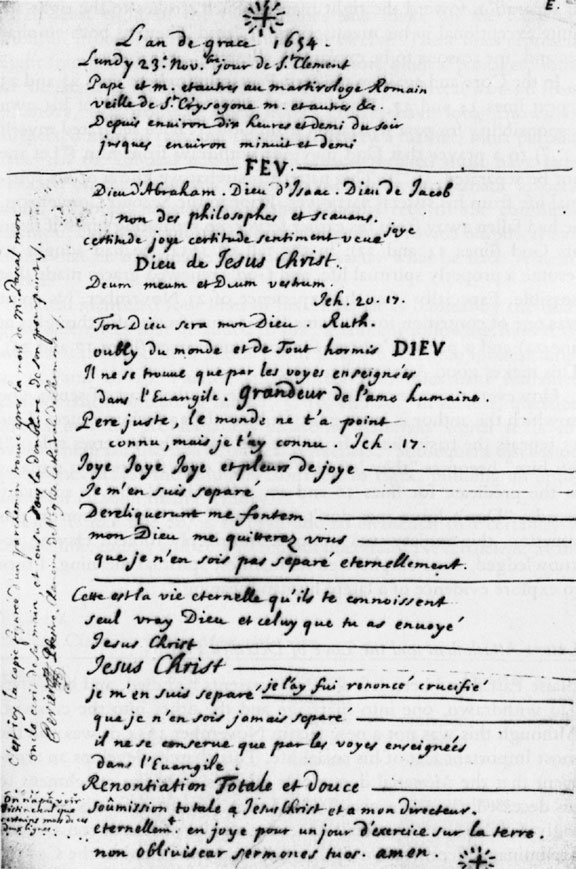 E.
L'an de grace 1654.
Lundy 23e Novbre jour de St Clement
Pape et m. et autres au martirologe Romain
veille de St Crysogone m. et autres &c.
Depuis environ dix heures et demi du soir
jusques environ minuit et demi
FEV.
Dieu d'Abraham. Dieu d'Isaac. Dieu de Jacob
non des philosophes et scavans.
certitude joye certitude sentiment veue joye
Dieu de Jesus Christ.
Deum meum et Deum vestrum.
Jeh. 20. 17.
Ton Dieu sera mon Dieu. Ruth.
oubly du monde et de Tout hormis DIEV
Il ne se trouve que par les voyes enseignées
dans l'Euangile. Grandeur de l'ame humaine.
Pere juste, le monde ne t'a point
connu, mais je t'ay connu. Jeh. 17.
Joye Joye Joye et pleurs de joye
Je m'en suis separé
Dereliquerunt me fontem
mon Dieu me quitterez vous
que je n'en sois pas separé eternellement
Cette est la vie eternelle qu'ils te connoissent
seul vray Dieu et celuy que tu as envoyé
Jesus Christ
Jesus Christ
je m'en suis separé je l'ay fui renoncé crucifié
que je n'en sois jamais separé
il ne se conserve que par les voyes enseignées
dans l'Euangile
Renontiation Totale et douce
soûmission totale a Jesus Christ et a mon directeur.
eternellemt en joye pour un jour d'exercice sur la terre.
non obliviscar sermones tuos. amen.
On n'a pu voir
certains mots de ces
deux lignes.